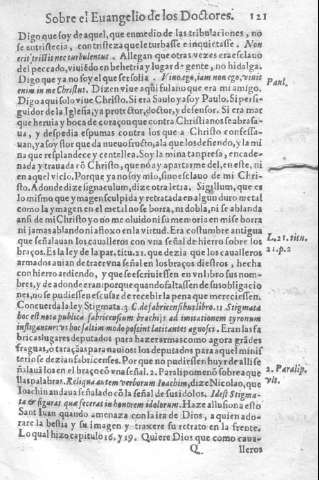 Sobre el Euangelio de los Doctores. 121
Digo que soy de aquel, que en medio de las tribulaciones, no
se entristecia, con tristeza que le turbasse e inquietasse. Non
erit tristis nec turbulentus. Allegan que otras vezes era esclauo
del peccado, viuiẽdo en behetria y lugar de gente, no hidalga.
Digo que ya no soy el que ser solia. Viuo ego, iam non ego, viuit
enim in me Christus. Dizen viue aqui fulano que era mi amigo.
Paul.
Digo aqui solo viue Christo. Si era Saulo ya soy Paulo. Si perse-
guidor de la Iglesia, ya protector, doctor, y defensor. Si era mar
que heruia y boca de coraçon que contra Christianos se abrasa-
ua, y despedia espumas contra los que a Christo confessa-
uan, ya soy flor que da nueuo fructo, ala que los defiendo, y la mi
na que resplandece y centellea. Soy la mina tan presa, y encade-
nada y trauada cõ Christo, que no ay apartarme del, en este, ni
en aquel siglo. Porque ya no soy mio, sino esclauo de mi Chri-
sto. A donde dize signaculum, dize otra letra. Sigillum, que es
lo mismo que ymagen sculpida y retratada en algun duro metal
como la ymagen en el metal no se borra, ni dobla, ni se ablanda
ansi de mi Christo yo no me oluido ni su memoria en mi se borra
ni jamas ablando ni afloxo en la virtud. Era costumbre antigua
que señalauan los caualleros con vna señal de hierro sobre los
braços. Es la ley de la par. titu. 21. que dezia que los caualleros
21. p. 2
armados auian de traer vna señal en los braços diestros, hecha
con hierro ardiendo, y que se escriuiessen en vn libro sus nom-
bres, y de adonde eran: porque quando faltassen de sus obligacio
nes, no se pudiessen escusar de recebir la pena que mereciessen.
Concuerda la ley Stigmata. 3. C. de fabricensibus libro. 11 Stigmata
hoc est nota publica fabricensium brachijs ad imitationem tyronum
infligantur: vt hoc saltim modo possint latitantes agnosci. Eran las fa
bricas lugares deputados para hazer armas como agora grãdes
fraguas, o taraçãas para nauios: los deputados para aquel mini
terio se dezian fabricenses. Por que no pudiessen huyr de alli se
ñalaua los en el braço cõ vna señal. 2. Paralipomenõ sobre aque
2. Paralip.
llas palabras. Reliqua autem verborum Ioachim, dize Nicolao, que
Ioachin andaua señalado cõ la señal de sus idolos. Idest Stigma-
ta & figuras que fecerat in honorem idolorum. Haze allusion a esto
Sant Iuan quando amenaza con la ira de Dios, a quien ado-
rare la bestia y su imagen y traxere su retrato en la frente.
Lo qual hizo capitulo 16. y 19. Quiere Dios que como caua-
Q lleros